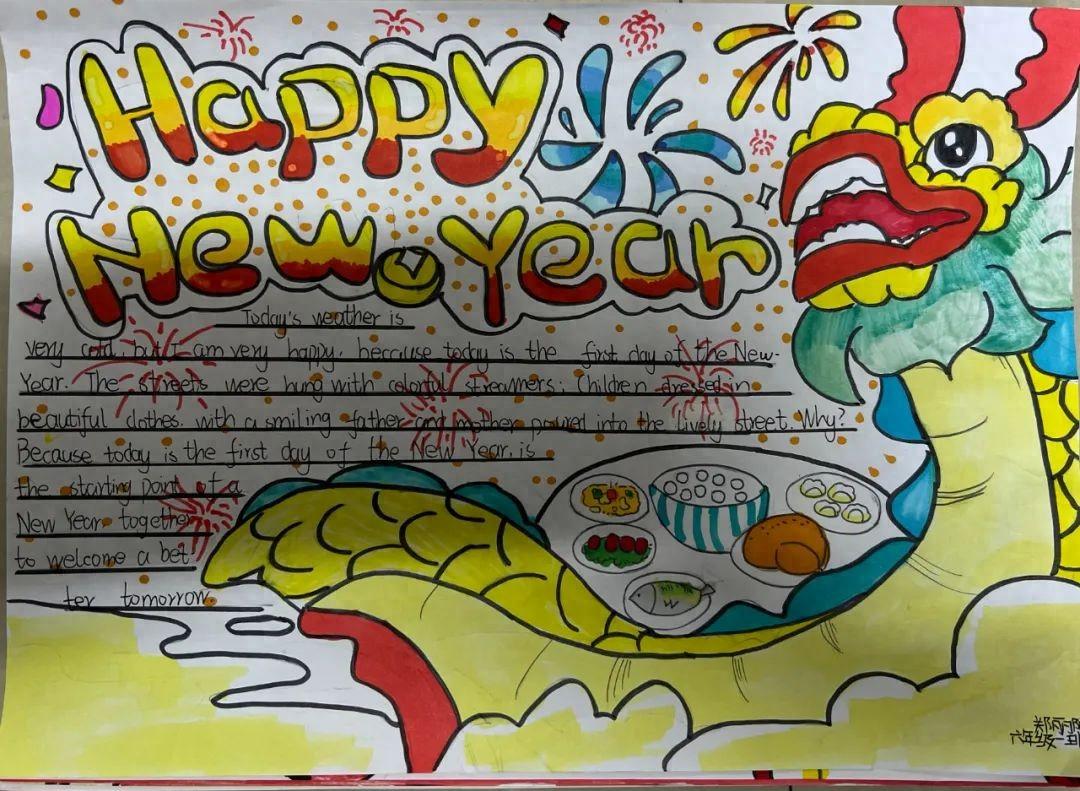 Happy
New Year
Today's weather is
very cold, but I am very happy, because today is the first day of the New-
Year. The streets were hung with colorful streamers; Children dressed in
beautiful clothes with a smiling father and mother poured into the lively street. Why?
Because today is the first day of the New Year, is
the starting point of a
New Year, together
to welcome a bet
ter tomorrow.
六年级一